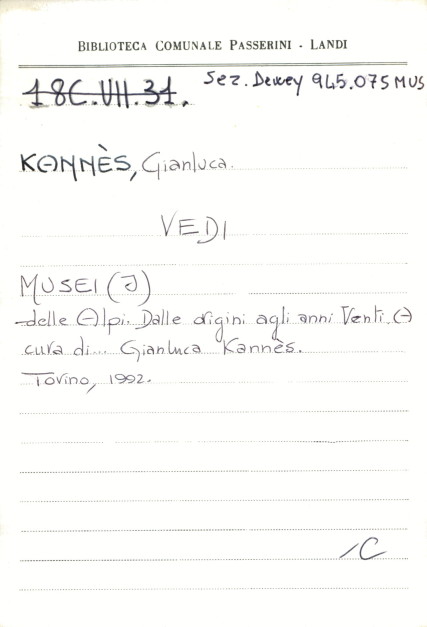 BIBLIOTECA COMUNALE PASSERINI - LANDI
18C.VII.31. Sez. Dewey 945.075 MUS
KANNÈS, Gianluca.
VEDI
MUSEI (I)
delle Alpi. Dalle origini agli anni Venti. A
cura di... Gianluca Kannès.
Torino, 1992.
/C